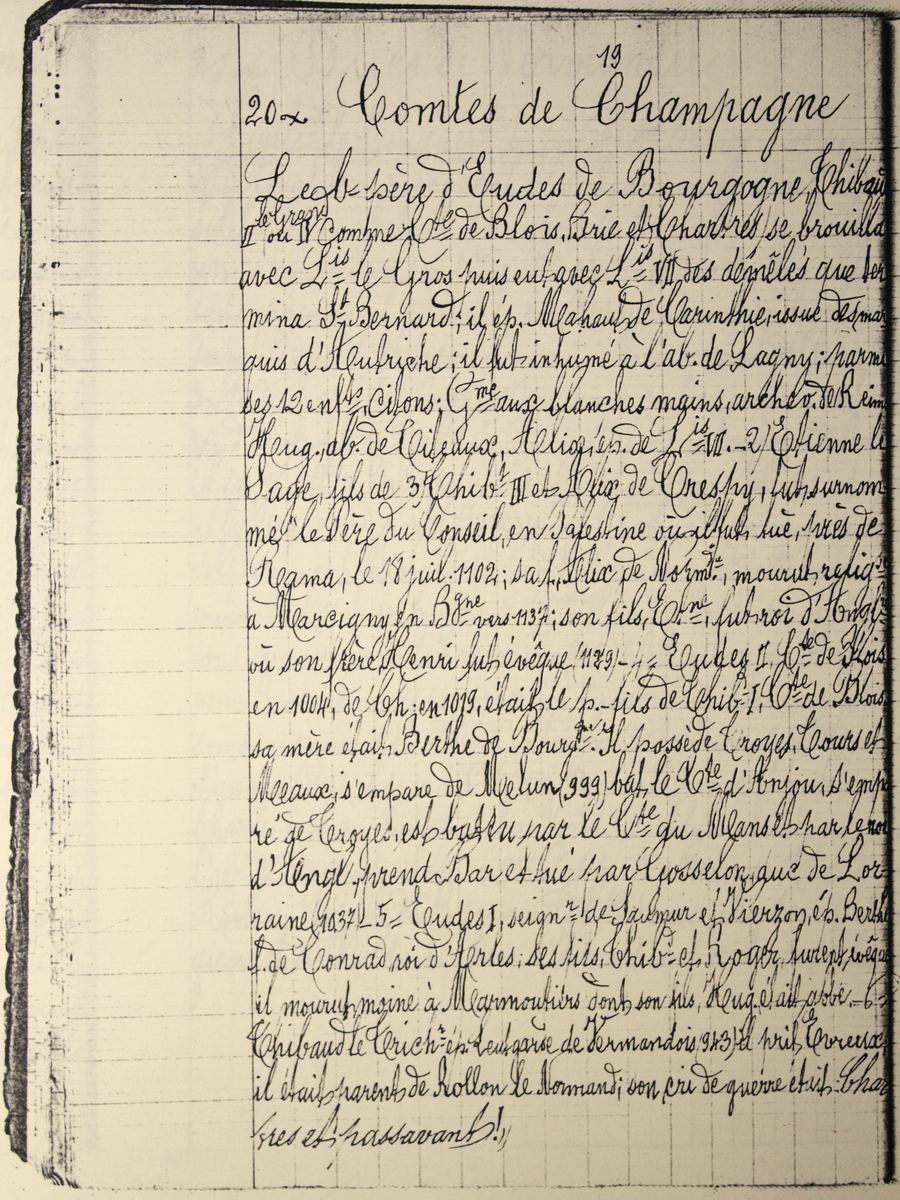 19
20 Comtes de Champagne
Le b-père d'Eudes de Bourgogne, Thibau
le Grand
II ou IV comme Cte de Blois, Brie et Chartres, se brouilla
avec Lis le Gros puis eut avec Lis VII des démêlés que ter
mina St Bernard; il ép. Mahaut de Carinthie, issue des mar
quis d'Autriche; il fut inhumé à l'ab. de Lagny; parmi
ses 12 enfts, citons: Gme aux blanches mains, archev. de Reim
Hug., ab. de Citeaux, Alix, ép. de Lis VII. - 2) Etienne le
Sage, fils de 3) Thibt III et Alix de Crespy, fut surnom
mé "le Père du Conseil, en Palestine où il fut tué, près de
Rama, le 18 juil. 1102; sa f. Alix de Normdie, mourut relig
à Marcigny en Bgne vers 1137; son fils, Etne, fut roi d'Angl
où son frère Henri fut évêque (1129) - 4 = Eudes II, Cte de Blois
en 1004, de Ch. en 1019, était le p.-fils de Thibt I, Cte de Blois
sa mère était Berthe de Bourgne. Il possède Troyes, Tours et
Meaux, s'empare de Melun (999) bat le Cte d'Anjou, s'empa
ré de Troyes, est battu par le Cte du Mans et par le roi
d'Angl., prend Bar et tué par Gosselon, duc de Lor-
raine, 1037 - 5 = Eudes I, seignr de Saumur et Vierzon, ép. Berthe
f. de Conrad roi d'Arles; ses fils, Thibt et Roger furent évêqu
il mourut moine à Marmoutiers dont son fils, Hug. était abbé. - 6 =
Thibaud le Trichr ép. Leutgarde de Vermandois (943) il prit Evreux,
il était parent de Rollon le Normand; son cri de guerre était "Char
tres et passavant!"